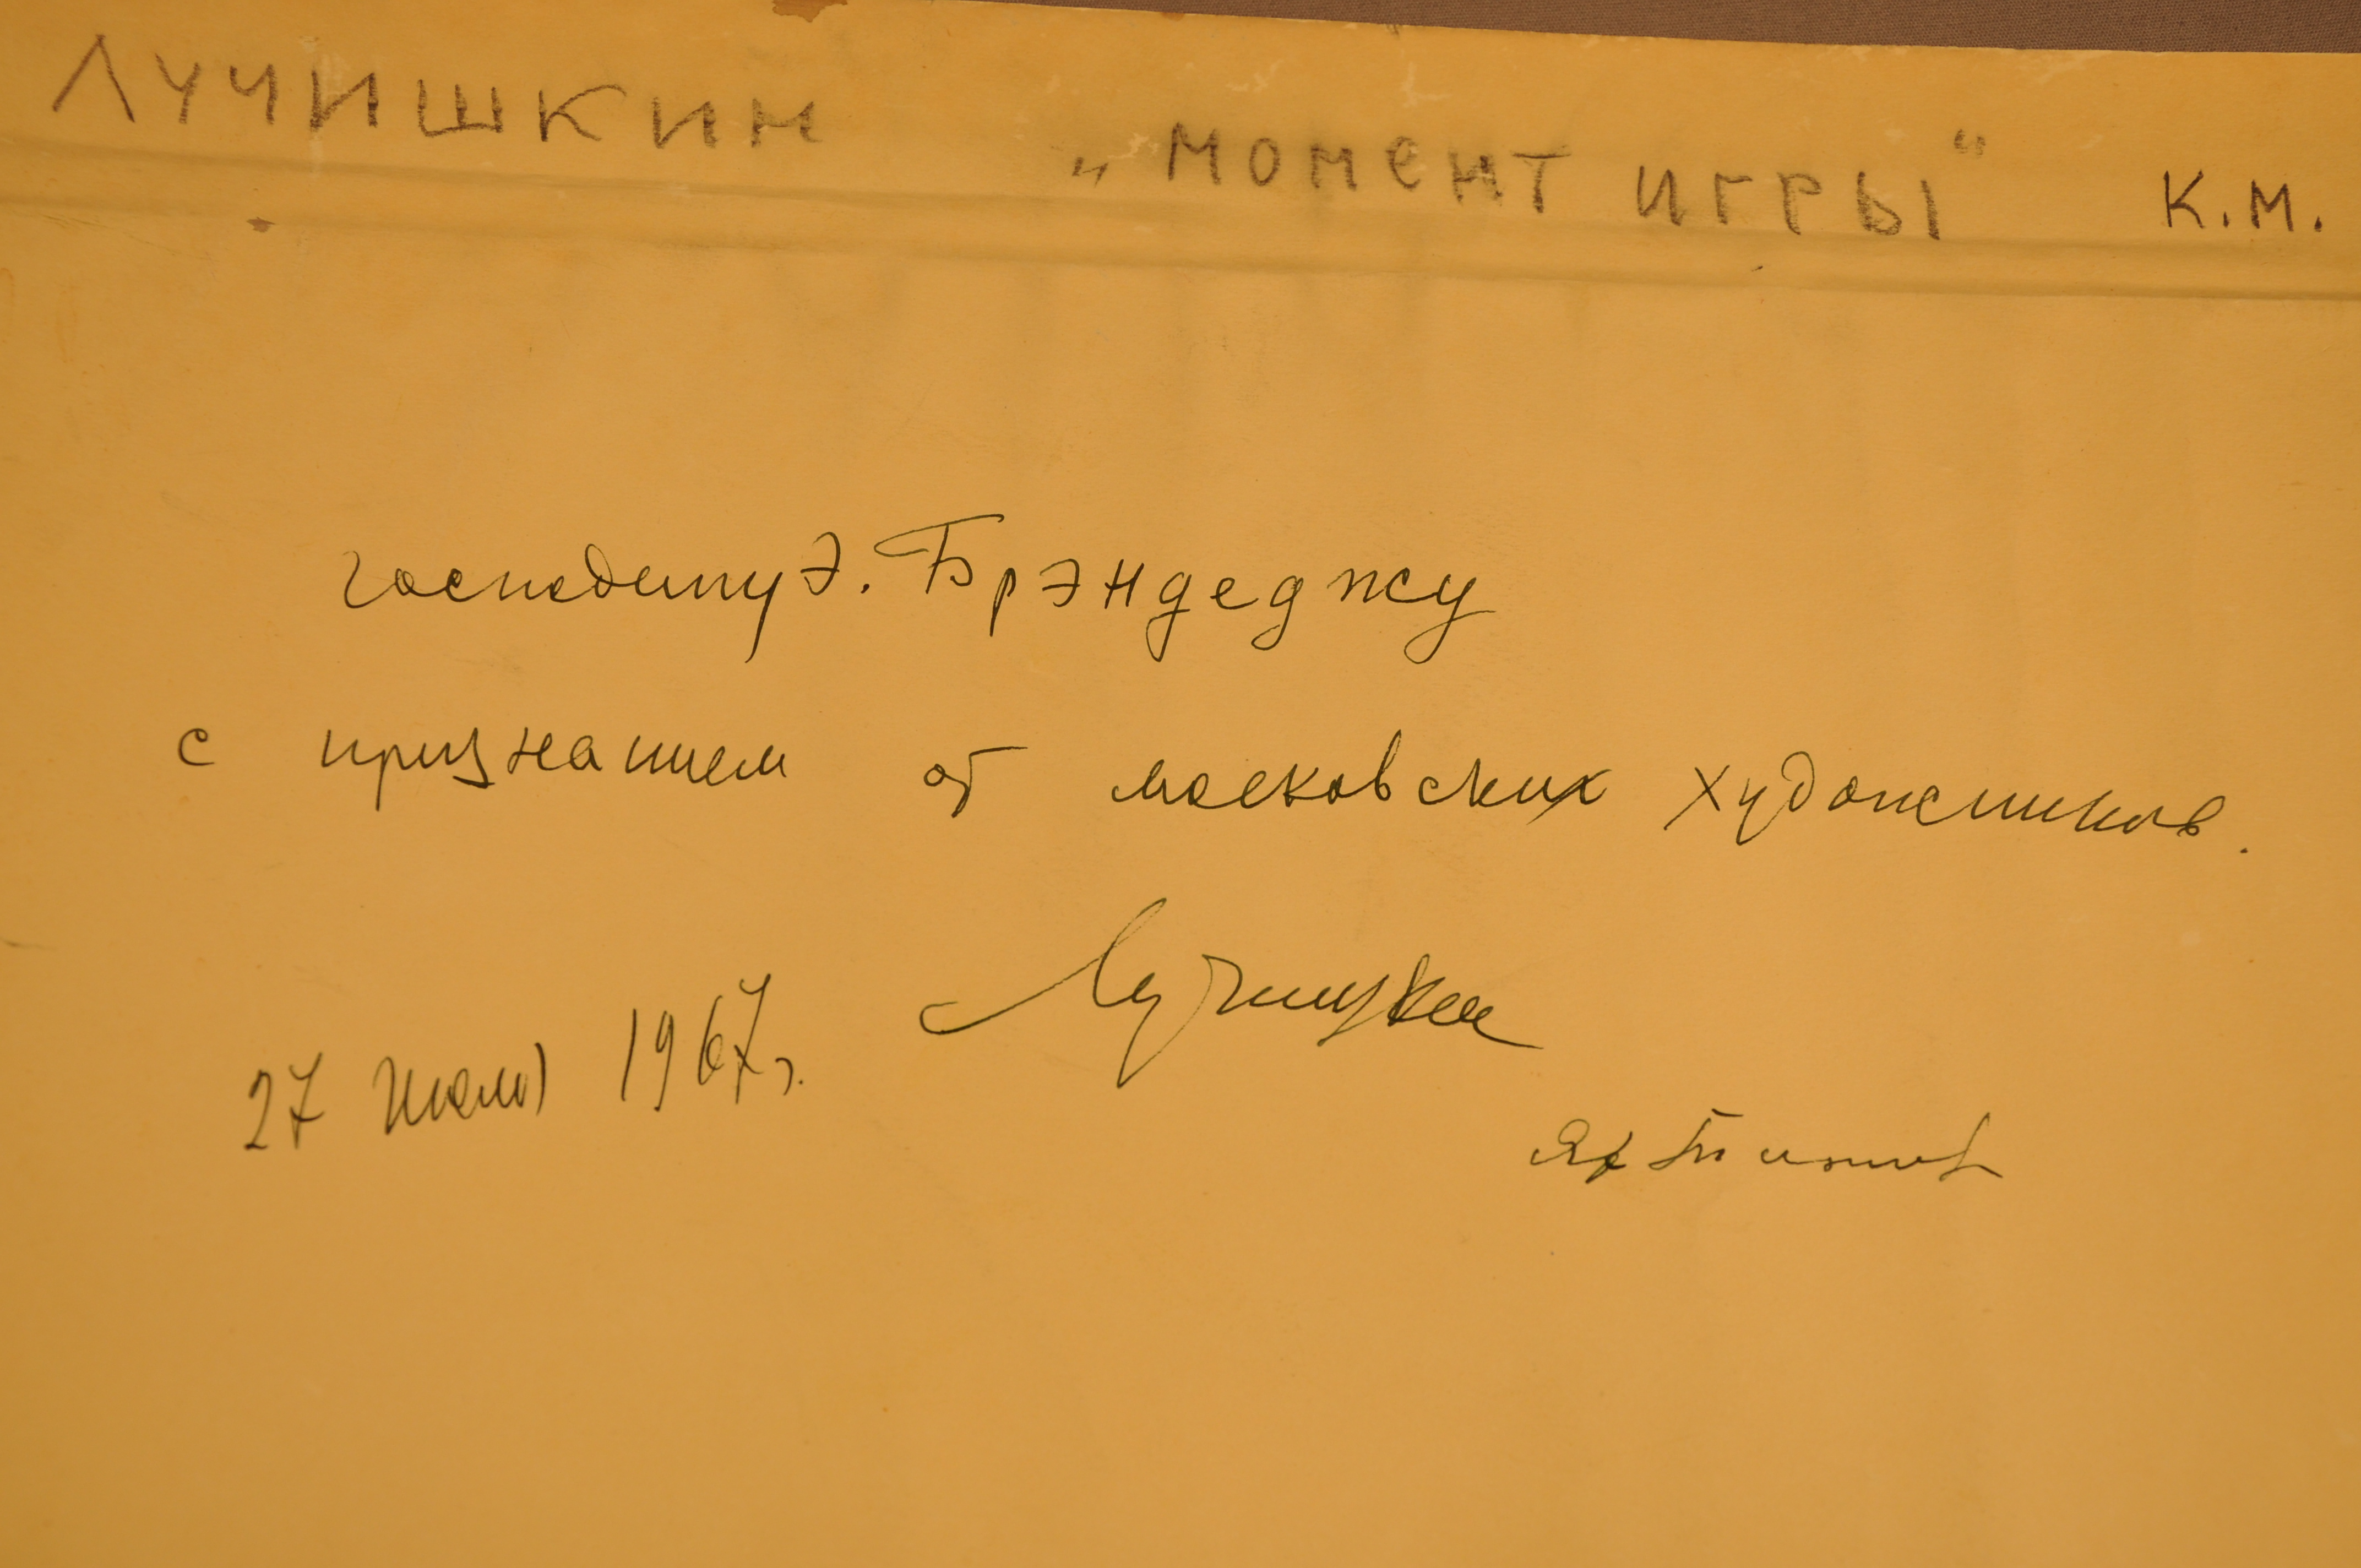 ЛУЧИШКИН „МОМЕНТ ИГРЫ“ К.М.
господину Э. Брэндеджу
с признанием от московских художников.
Лучишкин
27 июля 1967г.